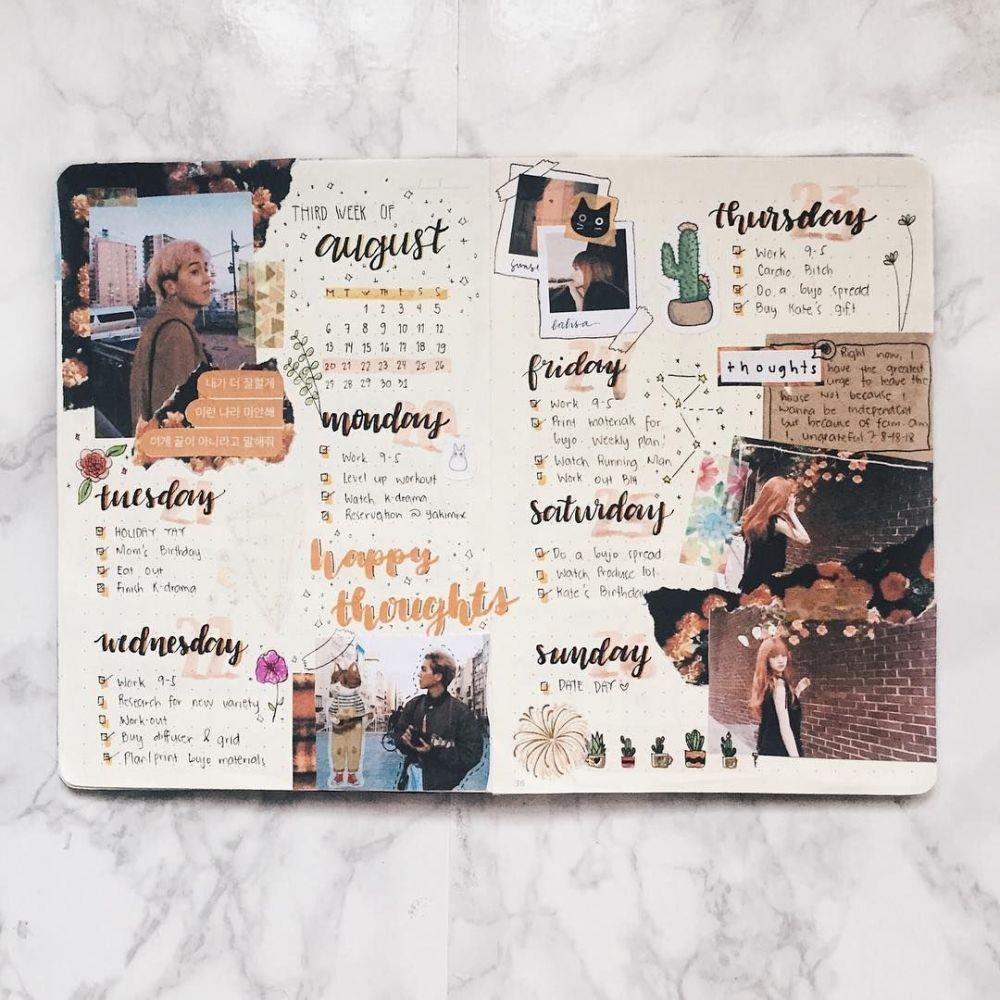 THIRD WEEK OF
august
M T W TH F S S
1 2 3 4 5
6 7 8 9 10 11 12
13 14 15 16 17 18 19
20 21 22 23 24 25 26
27 28 29 30 31
내가 더 잘할게
이런 나라 미안해
이게 끝이 아니라고 말해줘
20
monday
Work 9-5
Level up workout
Watch K-drama
Reservation @ Yakimix
21
tuesday
HOLIDAY YAY
Mom's Birthday
Eat out
Finish K-drama
22
wednesday
Work 9-5
Research for new variety
Work-out
Buy diffuser & grid
Plan/print bujo materials
happy
thoughts
23
thursday
Work 9-5
Cardio, Bitch
Do a bujo spread
Buy Kate's gift
lalisa
friday
Work 9-5
Print materials for
bujo. Weekly plan!
Watch Running Man
Work out B14
thoughts
Right now, I
have the greatest
urge to leave the
house not because I
wanna be independent
but because of fam. Am
I ungrateful? 8-18-18
25
saturday
Do a bujo spread
Watch Produce 101
Kate's Birthday
26
sunday
DATE DAY ♡
36